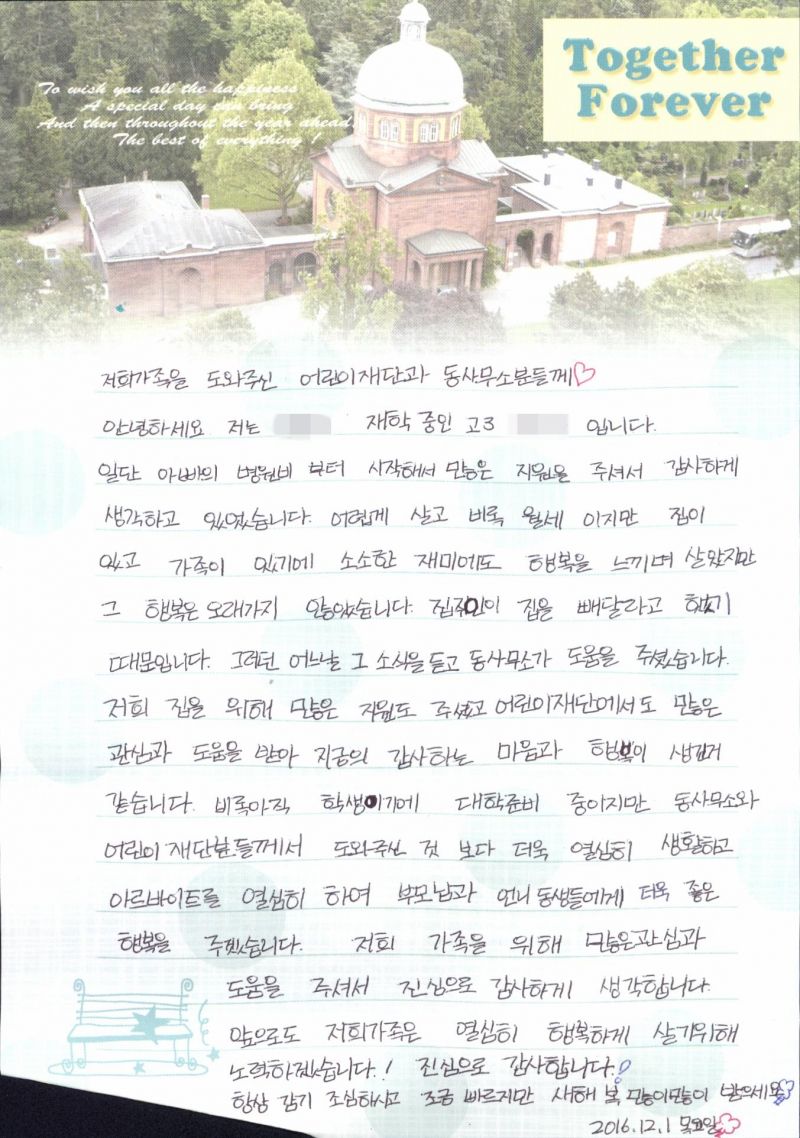 Together
Forever
To wish you all the happiness
A special day can bring
And then throughout the year ahead,
The best of everything !
저희가족을 도와주신 어린이재단과 동사무소분들께♡
안녕하세요 저는 재학 중인 고3 입니다.
일단 아빠의 병원비 부터 시작해서 많은 지원을 주셔서 감사하게
생각하고 있었습니다. 어렵게 살고 비록 월세 이지만 집이
있고 가족이 있기에 소소한 재미에도 행복을 느끼며 살았지만
그 행복은 오래가지 않았습니다. 집주인이 집을 빼달라고 했기
때문입니다. 그러던 어느날 그 소식을 듣고 동사무소가 도움을 주셨습니다.
저희 집을 위해 많은 지원도 주셨고 어린이재단에서도 많은
관심과 도움을 받아 지금의 감사하는 마음과 행복이 생긴거
같습니다. 비록아직 학생이기에 대학준비 중이지만 동사무소와
어린이재단분들께서 도와주신 것 보다 더욱 열심히 생활하고
아르바이트를 열심히 하여 부모님과 언니 동생들에게 더욱 좋은
행복을 주겠습니다. 저희 가족을 위해 많은관심과
도움을 주셔서 진심으로 감사하게 생각합니다.
앞으로도 저희가족은 열심히 행복하게 살기위해
노력하겠습니다.! 진심으로 감사합니다!
항상 감기 조심하시고 조금 빠르지만 새해 복 많이많이 받으세요
2016.12.1 목요일